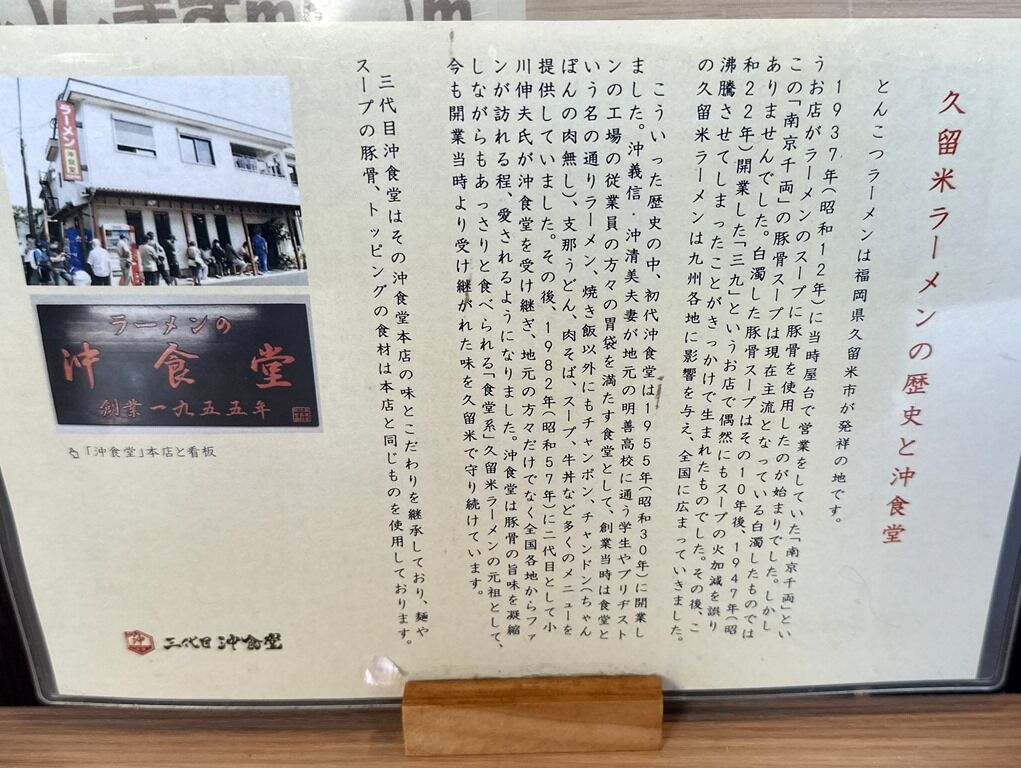 久留米ラーメンの歴史と沖食堂
とんこつラーメンは福岡県久留米市が発祥の地です。
1937年(昭和12年)に当時屋台で営業をしていた「南京千両」とい
うお店がラーメンのスープに豚骨を使用したのが始まりでした。しかし
この「南京千両」の豚骨スープは現在主流となっている白濁したものでは
ありませんでした。白濁した豚骨スープはその10年後、1947年(昭
和22年)開業した「三九」というお店で偶然にもスープの火加減を誤り
沸騰させてしまったことがきっかけで生まれたものでした。その後、こ
の久留米ラーメンは九州各地に影響を与え、全国に広まっていきました。
こういった歴史の中、初代沖食堂は1955年(昭和30年)に開業し
ました。沖義信・沖清美夫妻が地元の明善高校に通う学生やブリヂスト
ンの工場の従業員の方々の胃袋を満たす食堂として、創業当時は食堂と
いう名の通りラーメン、焼き飯以外にもチャンポン、チャンドン(ちゃん
ぽんの肉無し)、支那うどん、肉そば、スープ、牛丼など多くのメニューを
提供していました。その後、1982年(昭和57年)に二代目として小
川伸夫氏が沖食堂を受け継ぎ、地元の方々だけでなく全国各地からファ
ンが訪れる程、愛されるようになりました。沖食堂は豚骨の旨味を凝縮
しながらもあっさりと食べられる「食堂系」久留米ラーメンの元祖として、
今も開業当時より受け継がれた味を久留米で守り続けています。
三代目沖食堂はその沖食堂本店の味とこだわりを継承しており、麺や
スープの豚骨、トッピングの食材は本店と同じものを使用しております。
ラーメン
沖食堂
ラーメンの
沖食堂
創業一九五五年
「沖食堂」本店と看板
沖
三代目 沖食堂